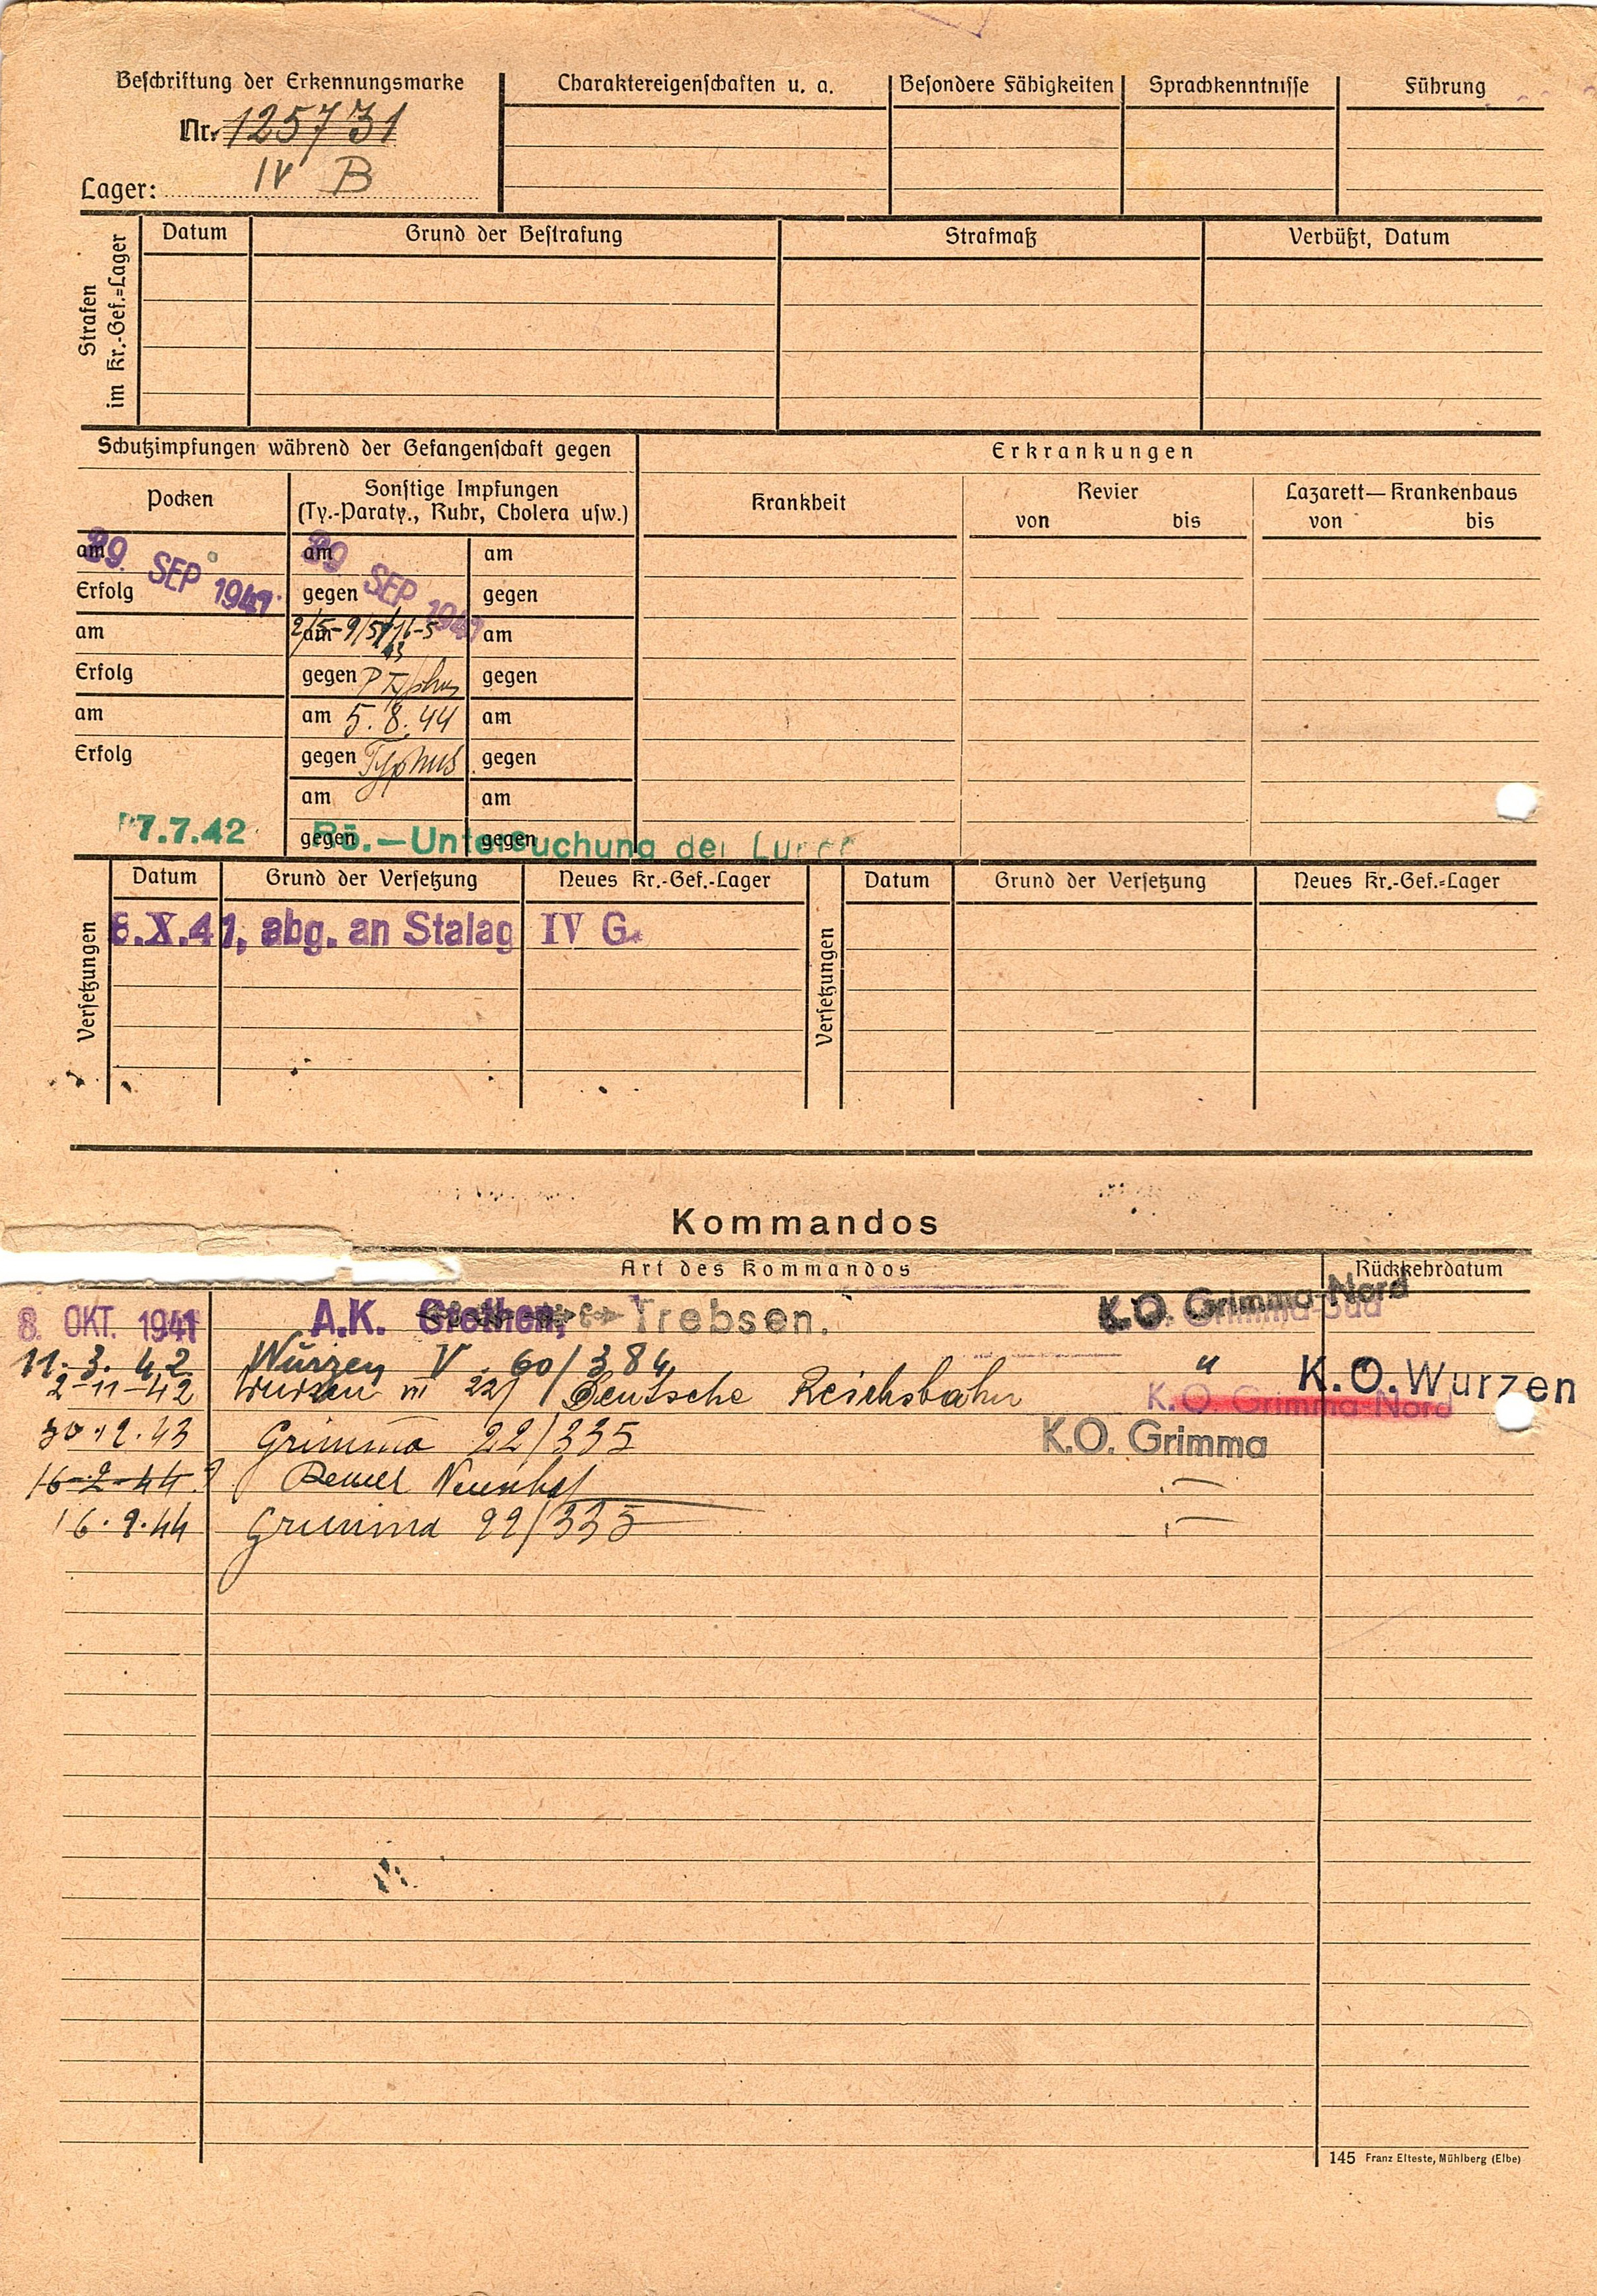 Beschriftung der Erkennungsmarke
Nr. 125731
Lager: IV B
Charaktereigenschaften u. a.
Besondere Fähigkeiten
Sprachkenntnisse
Führung
Strafen im Kr.-Gef.=Lager
Datum
Grund der Bestrafung
Strafmaß
Verbüßt, Datum
Schutzimpfungen während der Gefangenschaft gegen
Erkrankungen
Pocken
Sonstige Impfungen
(Ty.-Paraty., Ruhr, Cholera usw.)
Krankheit
Revier
von bis
Lazarett—Krankenhaus
von bis
am 29. SEP 1941
am 29 SEP 1941
am
Erfolg
gegen
gegen
am
am 2/5-9/5 16-5 43
am
Erfolg
gegen P Typhus
gegen
am
am 5.8.44
am
Erfolg
gegen Typhus
gegen
am
am
7.7.42
gegen
gegen
Rö.—Untersuchung der Lunge
Versetzungen
Datum
Grund der Versetzung
Neues Kr.-Gef.-Lager
Versetzungen
Datum
Grund der Versetzung
Neues Kr.-Gef.=Lager
8.X.41, abg. an Stalag IV G.
Kommandos
Art des Kommandos
Rückkehrdatum
8. OKT. 1941 A.K. Grethen, Trebsen. K.O. Grimma-Nord
11. 3. 42 Wurzen V 60/384 " K.O. Wurzen
2-11-42 Wurzen VII 227 Deutsche Reichsbahn K.O. Grimma-Nord
Grimma 22/335 K.O. Grimma
16-2-44
16.2.44 Grimma 22/335
145 Franz Elteste, Mühlberg (Elbe)